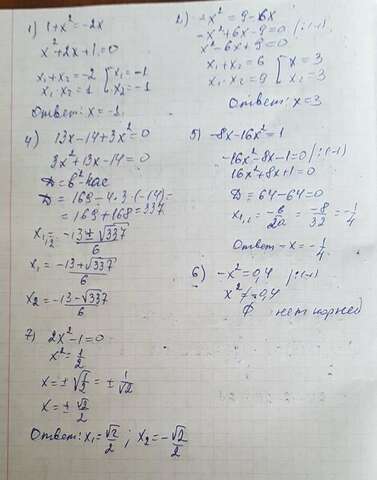 1) 1+x²=-2x
x²+2x+1=0
x₁+x₂=-2 [ x₁=-1
x₁·x₂=1 [ x₂=-1
Ответ: x=-1.
2) -x²=9-6x
-x²+6x-9=0 |:(-1)
x²-6x+9=0
x₁+x₂=6 [ x=3
x₁·x₂=9 [ x₂=3
Ответ: x=3
4) 13x-14+3x²=0
3x²+13x-14=0
D=b²-4ac
D=169-4·3·(-14)=
=169+168=337
x₁,₂=(-13±√337)/6
x₁=(-13+√337)/6
x₂=(-13-√337)/6
5) -8x-16x²=1
-16x²-8x-1=0 |:(-1)
16x²+8x+1=0
D=64-64=0
x₁,₂=-b/2a=-8/32=-1/4
Ответ-x=-1/4
6) -x²=0,4 |:(-1)
x²≠-0,4
∅ нет корней
7) 2x²-1=0
x²=1/2
x=±√(1/2)=±1/√2
x=±√2/2
Ответ: x₁=√2/2; x₂=-√2/2